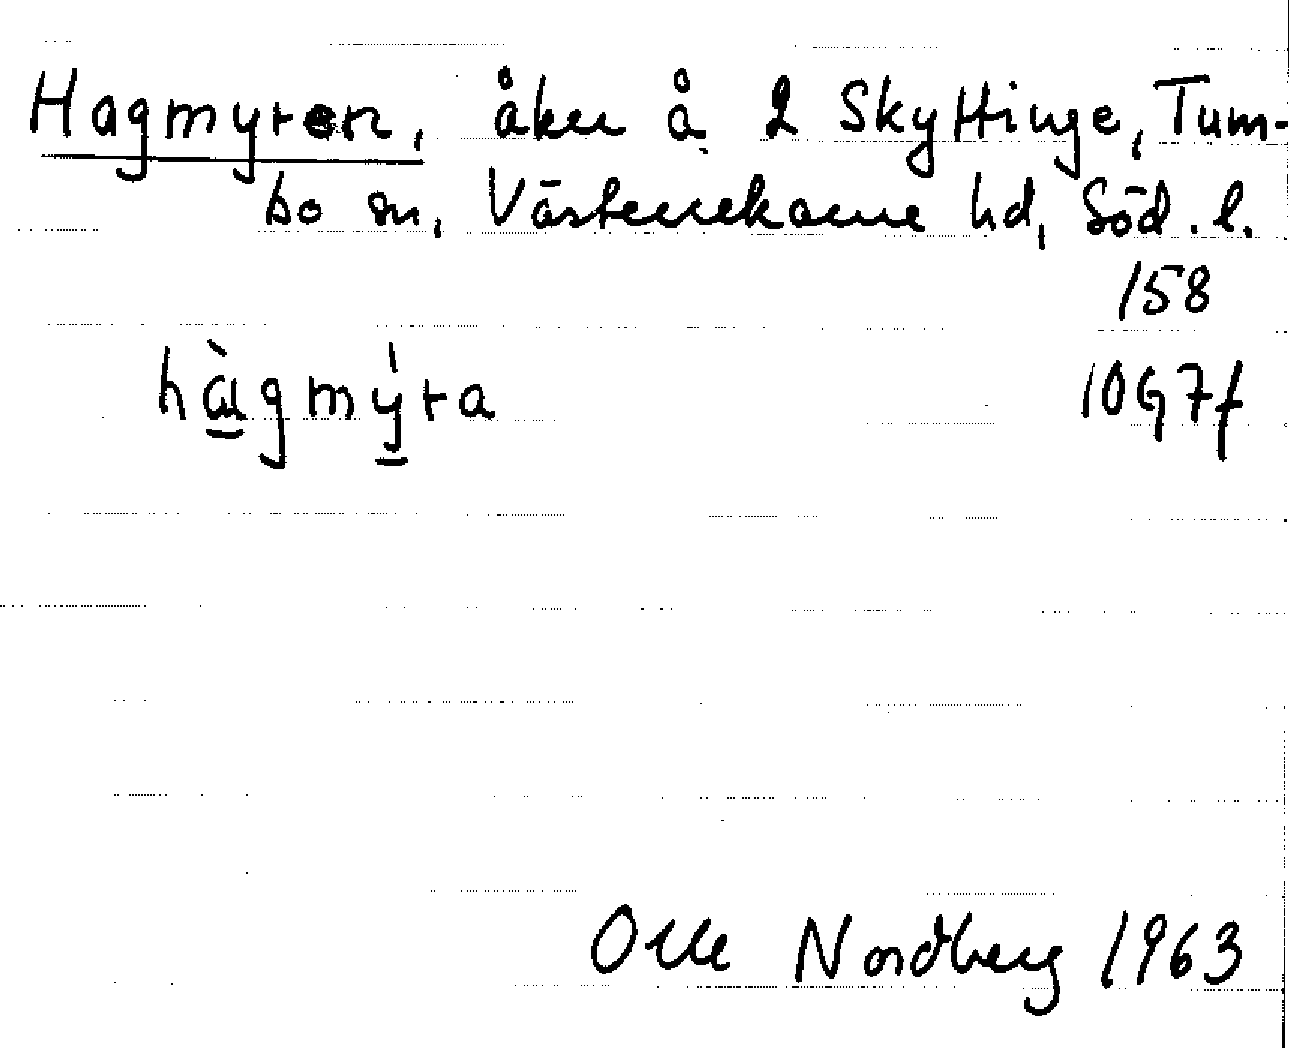 Hagmyren, åker å 2 Skyttinge, Tum-
bo sn, Västerrekarne hd, Söd. l.
158
hàgmýra 10G7f
Olle Nordberg 1963